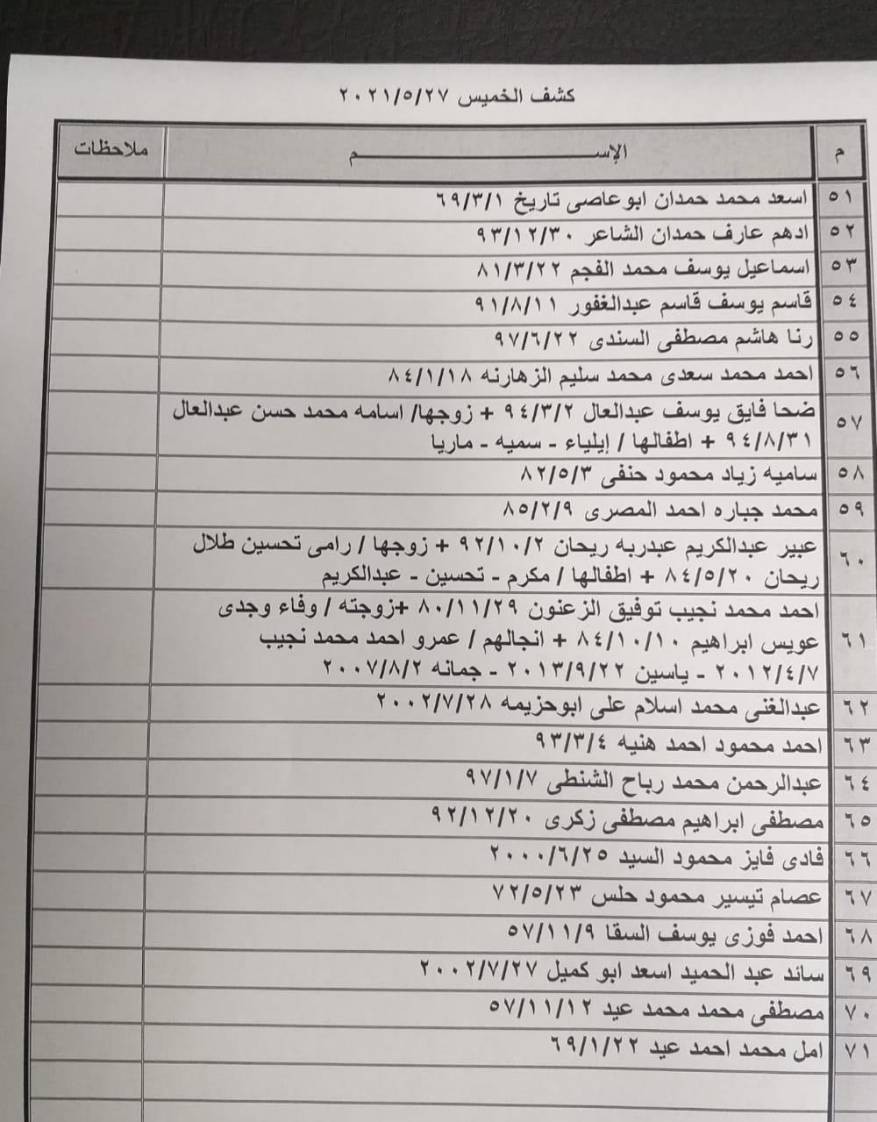 كشف الخميس ٢٠٢١/٥/٢٧
م الإســــــــم ملاحظات
٥١ اسعد محمد حمدان ابو عاصى تاريخ ٦٩/٣/١
٥٢ ادهم عارف حمدان الشاعر ٩٣/١٢/٣٠
٥٣ اسماعيل يوسف محمد الفجم ٨١/٣/٢٢
٥٤ قاسم يوسف قاسم عبدالغفور ٩١/٨/١١
٥٥ رنا هاشم مصطفى السندى ٩٧/٦/٢٢
٥٦ احمد محمد سعدى محمد سليم الزهارنه ٨٤/١/١٨
٥٧ ضحا فايق يوسف عبدالعال ٩٤/٣/٢ + زوجها/ اسامه محمد حسن عبدالعال
٩٤/٨/٣١ + اطفالها / إيلياء - سميه - ماريا
٥٨ ساميه زياد محمود حنفى ٨٢/٥/٣
٥٩ محمد جباره احمد المصرى ٨٥/٢/٩
٦٠ عبير عبدالكريم عبدربه ريحان ٩٢/١٠/٢ + زوجها / رامى تحسين طلال
ريحان ٨٤/٥/٢٠ + اطفالها / مكرم - تحسين - عبدالكريم
٦١ احمد محمد نجيب توفيق الزعنون ٨٠/١١/٢٩ +زوجته / وفاء وجدى
عويس ابراهيم ٨٤/١٠/١٠ + انجالهم / عمرو احمد محمد نجيب
٢٠١٢/٤/٧ - ياسين ٢٠١٣/٩/٢٢ - جمانه ٢٠٠٧/٨/٢
٦٢ عبدالغنى محمد اسلام على ابوحزيمه ٢٠٠٢/٧/٢٨
٦٣ احمد محمود احمد هنيه ٩٣/٣/٤
٦٤ عبدالرحمن محمد رباح الشنطى ٩٧/١/٧
٦٥ مصطفى ابراهيم مصطفى زكرى ٩٢/١٢/٢٠
٦٦ فادى فايز محمود السيد ٢٠٠٠/٦/٢٥
٦٧ عصام تيسير محمود حلس ٧٢/٥/٢٣
٦٨ احمد فوزى يوسف السقا ٥٧/١١/٩
٦٩ سائد عبد الحميد اسعد ابو كميل ٢٠٠٢/٧/٢٧
٧٠ مصطفى محمد محمد عيد ٥٧/١١/١٢
٧١ امل محمد احمد عيد ٦٩/١/٢٢